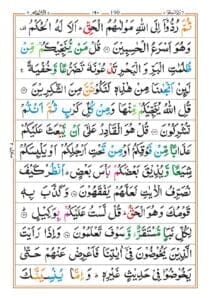 ثُمَّ رُدُّوْۤا اِلَى اللّٰهِ مَوْلٰىهُمُ الْحَقِّ ؕ اَلَا لَهُ الْحُكْمُ
وَهُوَ اَسْرَعُ الْحٰسِبِيْنَ قُلْ مَنْ يُّنَجِّيْكُمْ مِّنْ
ظُلُمٰتِ الْبَرِّ وَالْبَحْرِ تَدْعُوْنَهٗ تَضَرُّعًا وَّخُفْيَةً
لَئِنْ اَنْجٰىنَا مِنْ هٰذِهٖ لَنَكُوْنَنَّ مِنَ الشّٰكِرِيْنَ
قُلِ اللّٰهُ يُنَجِّيْكُمْ مِّنْهَا وَمِنْ كُلِّ كَرْبٍ ثُمَّ اَنْتُمْ
تُشْرِكُوْنَ قُلْ هُوَ الْقَادِرُ عَلٰۤى اَنْ يَّبْعَثَ عَلَيْكُمْ
عَذَابًا مِّنْ فَوْقِكُمْ اَوْ مِنْ تَحْتِ اَرْجُلِكُمْ اَوْ يَلْبِسَكُمْ
شِيَعًا وَّيُذِيْقَ بَعْضَكُمْ بَاْسَ بَعْضٍ ؕ اُنْظُرْ كَيْفَ
نُصَرِّفُ الْاٰيٰتِ لَعَلَّهُمْ يَفْقَهُوْنَ وَكَذَّبَ بِهٖ
قَوْمُكَ وَهُوَ الْحَقُّ ؕ قُلْ لَّسْتُ عَلَيْكُمْ بِوَكِيْلٍ
لِكُلِّ نَبَاٍ مُّسْتَقَرٌّ وَّسَوْفَ تَعْلَمُوْنَ وَاِذَا رَاَيْتَ
الَّذِيْنَ يَخُوْضُوْنَ فِيْۤ اٰيٰتِنَا فَاَعْرِضْ عَنْهُمْ حَتّٰى
يَخُوْضُوْا فِيْ حَدِيْثٍ غَيْرِهٖ ؕ وَاِمَّا يُنْسِيَنَّكَ